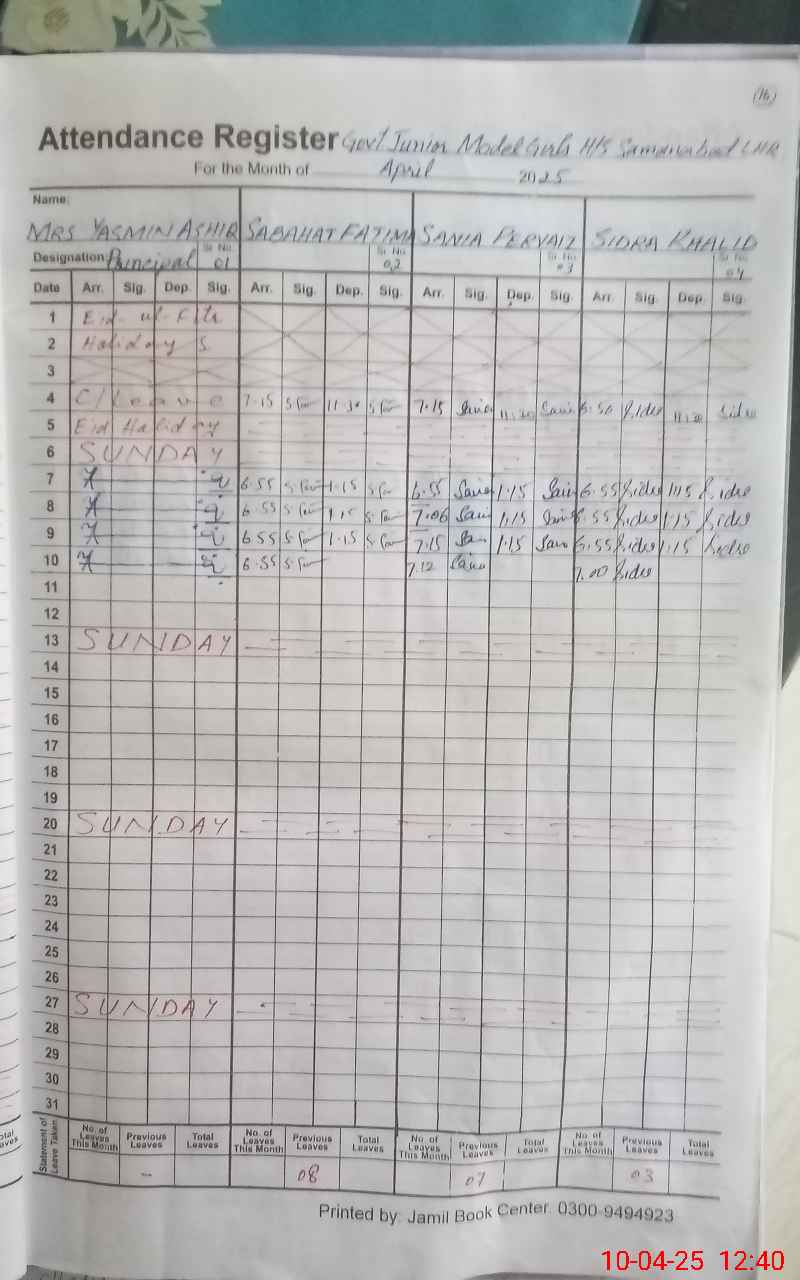 16
Attendance Register Govt Junior Model Girls H/S Samanabad LHR
For the Month of April 2025
Name:
MRS YASMIN ASHIQ SABAHAT FATIMA SANIA PERVAIZ SIDRA KHALID
Designation: Principal Sr. No. 01 Sr. No. 02 Sr. No. 03 Sr. No. 04
Date Arr. Sig. Dep. Sig. Arr. Sig. Dep. Sig. Arr. Sig. Dep. Sig. Arr. Sig. Dep. Sig.
1 Eid ul Fitr
2 Holiday S
3
4 C/Leave 7.15 11.30 7.15 11.30 6.50 11.30 Sidra
5 Eid Holiday
6 SUNDAY
7 6.55 1.15 6.55 1.15 6.55 Sidra 1.15 Sidra
8 6.55 1.15 7.06 1.15 6.55 Sidra 1.15 Sidra
9 6.55 1.15 7.15 1.15 6.55 Sidra 1.15 Sidra
10 6.55 7.12 7.00 Sidra
11
12
13 SUNDAY
14
15
16
17
18
19
20 SUNDAY
21
22
23
24
25
26
27 SUNDAY
28
29
30
31
Statement of Leave Taken
No. of Leaves This Month Previous Leaves Total Leaves No. of Leaves This Month Previous Leaves Total Leaves No. of Leaves This Month Previous Leaves Total Leaves No. of Leaves This Month Previous Leaves Total Leaves
- 08 07 03
Printed by: Jamil Book Center. 0300-9494923
10-04-25 12:40